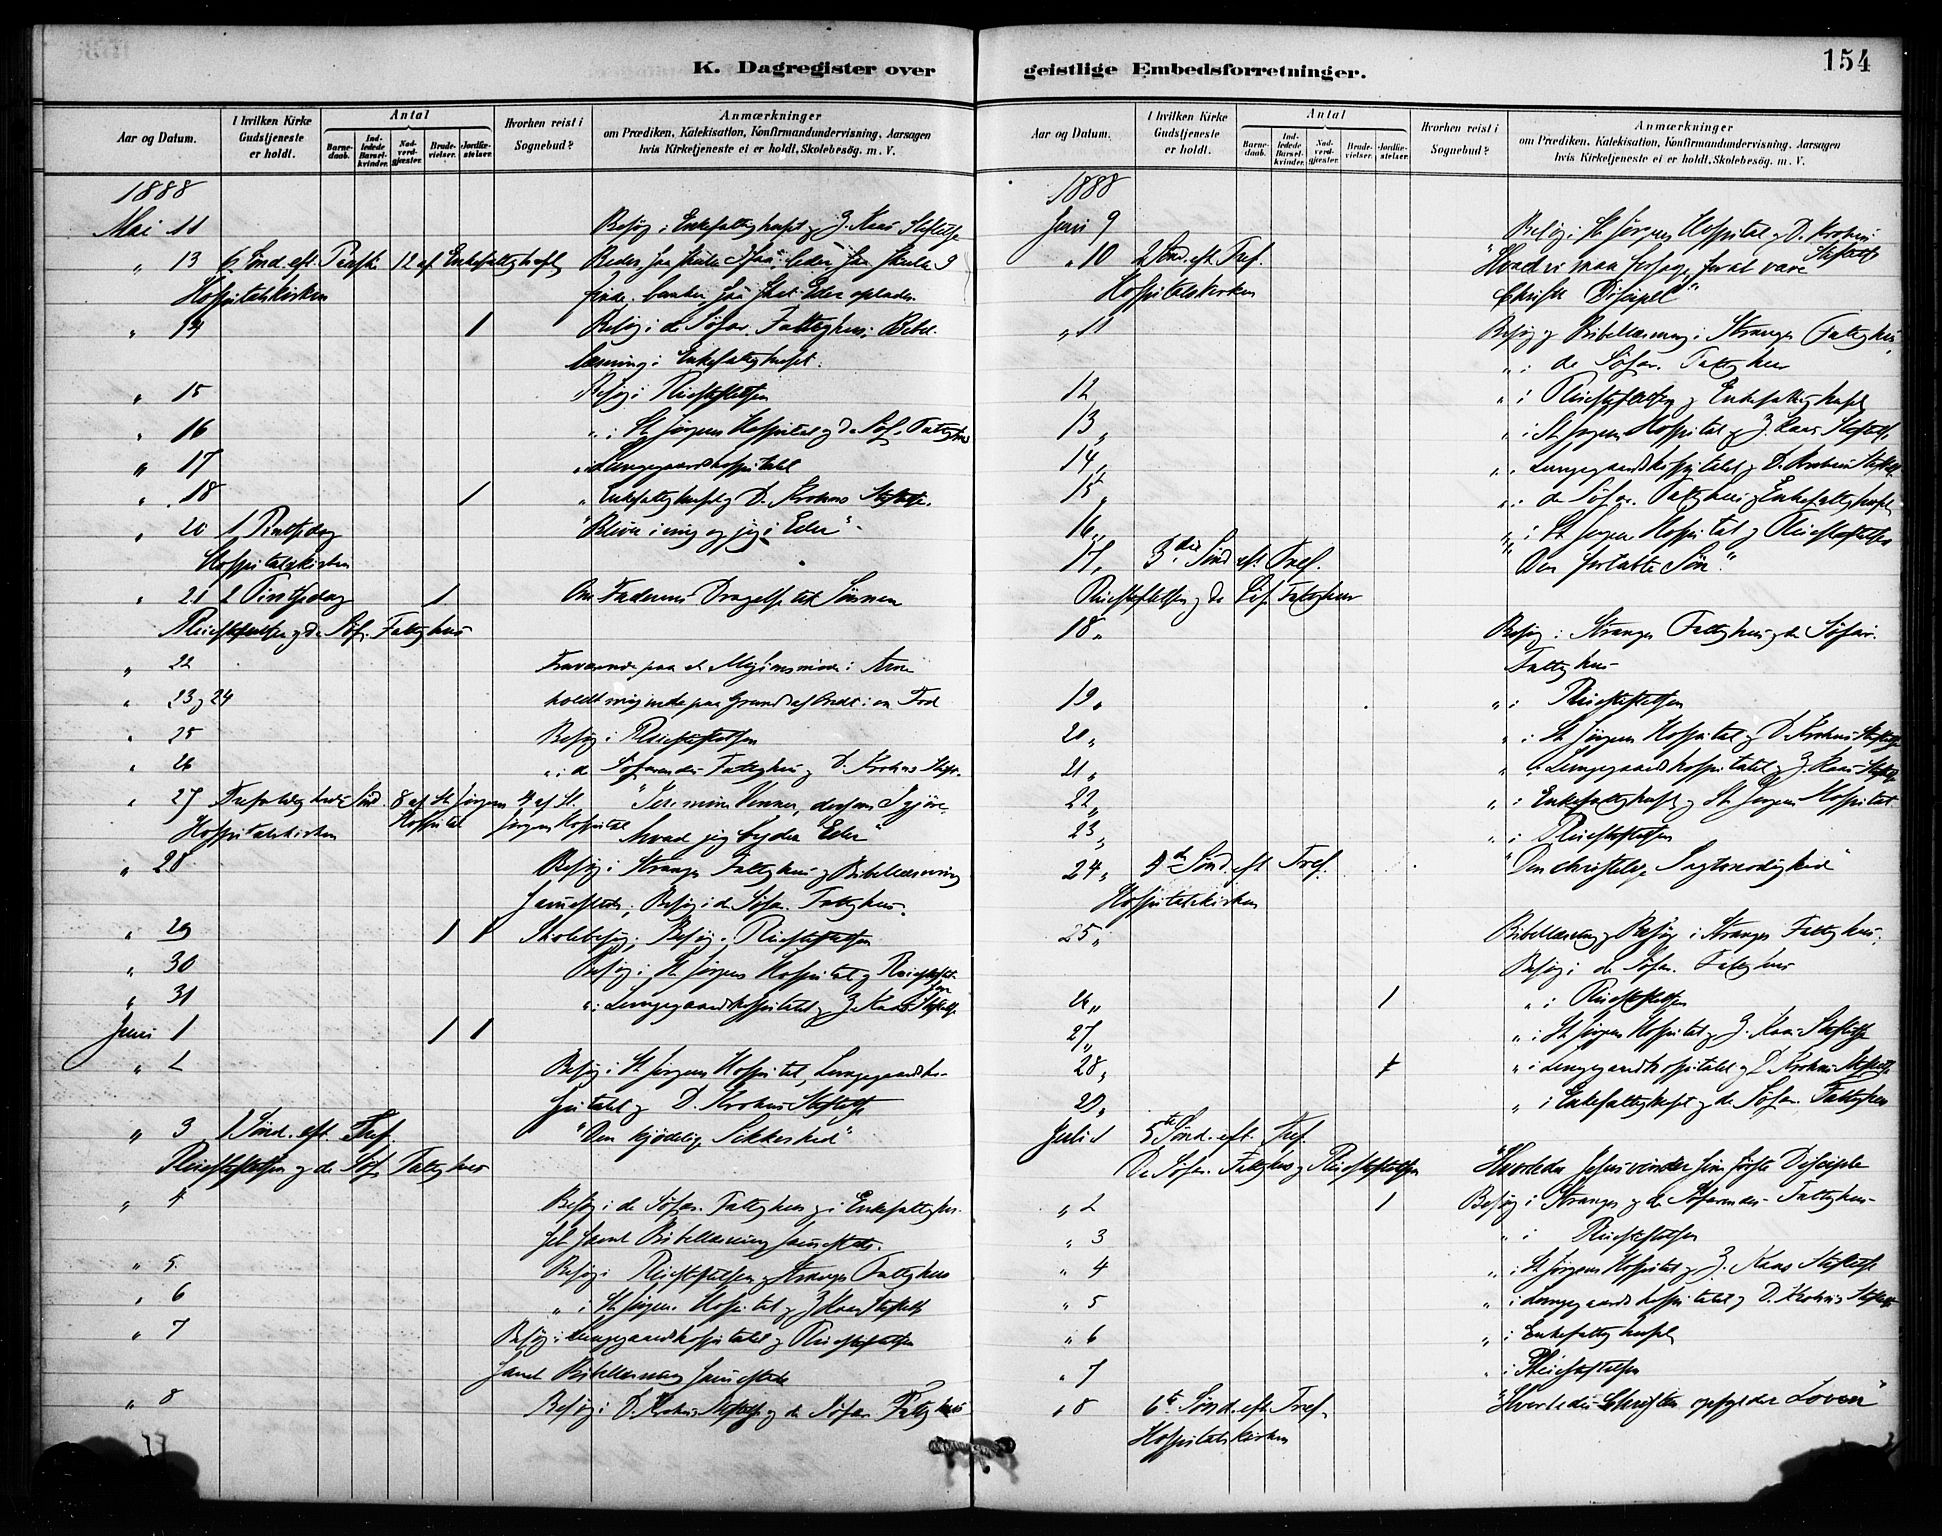 154
K. Dagregister over geistlige Embedsforretninger.
Aar og Datum.
I hvilken Kirke Gudstjeneste er holdt.
Antal
Barnedaab.
Indledede Barselkvinder.
Nadverdgjester.
Brudevielser.
Jordfæstelser
Hvorhen reist i Sognebud?
Anmærkninger
om Prædiken, Katekisation, Konfirmandundervisning, Aarsagen
hvis Kirketjeneste ei er holdt, Skolebesøg. m. V.
1888
Mai 11 Besøg i Enkefattighuset og Z. Kaas Stiftelse
" 13 6 Sønd. eft. Paaske 12 af Enkefattighuset Beder, saa skulle I faa, leder, saa skulle I
Hospitalskirken finde, banker, saa skal Eder oplades
" 14 1 Besøg i de Søfar. Fattighus. Bibel
læsning i Enkefattighuset.
" 15 Besøg i
" 16 " i St Jørgens Hospital og de Søf. Fattighus
" 17 " i Lungegaardshospitalet
" 18 1 " Enkefattighuset og D. Krohns Stiftelse.
" 20 1 Pintsedag "Bliver i mig og jeg i Eder"
Hospitalskirken
" 21 2 Pintsedag 1 Om Faderens Dragelse til Sønnen
og de Søf. Fattighus
" 22 Fraværende paa et Missionsmøde i Arne
" 23 og 24 holdt mig inde paa Grund af Ondt i en Fod
" 25 Besøg i
" 26 " i de Søfarendes Fattighus og D. Krohns Stift.
" 27 Trefoldighedssønd 8 af St. Jørgens 4 af St. "I ere mine Venner, dersom I gjøre,
Hospitalskirken Hospital Jørgens Hospital hvad jeg byder Eder"
" 28 Besøg i Stranges Fattighus og Bibellæsning
sammesteds; Besøg i de Søfar. Fattighus.
" 29 1 1 Skolebesøg; Besøg i
" 30 Besøg i St Jørgens Hospital og
" 31 " i Lungegaardshospitalet og Z. Kaas Stiftelse
Juni 1 1 1
" 2 Besøg i St Jørgens Hospital, Lungegaardsho-
spitalet og D. Krohns Stiftelse
" 3 1 Sønd. eft. Tref. "Den kjødelige Sikkerhed"
og de Søf. Fattighus
" 4 Besøg i de Søfar. Fattighus og i Enkefattighu-
set samt Bibellæsning sammesteds.
" 5. Besøg i og Stranges Fattighus
" 6 " i St Jørgens Hospital og Z Kaas Stiftelse
" 7 Besøg i Lungegaardshospitalet og
samt Bibellæsning sammesteds
" 8 Besøg i D. Krohns Stiftelse og de Søfar. Fattighus
Aar og Datum.
I hvilken Kirke Gudstjeneste er holdt.
Antal
Barnedaab.
Indledede Barselkvinder.
Nadverdgjester.
Brudevielser.
Jordfæstelser.
Hvorhen reist i Sognebud?
Anmærkninger
om Prædiken, Katekisation, Konfirmandundervisning, Aarsagen
hvis Kirketjeneste ei er holdt, Skolebesøg. m. V.
1888
Juni 9 Besøg i St Jørgens Hospital og D. Krohns Stiftelse
" 10 2 Sønd. eft. Tref. "Hvad vi maa forsage for at være
Hospitalskirken Christi Discipel"
" 11 Besøg og Bibellæsning i Stranges Fattighus,
" i de Søfar. Fattighus
12 " i og Enkefattighuset
13 " " i St Jørgens Hospital og Z. Kaas Stiftelse
14 " " i Lungegaardshospitalet og D. Krohns Stiftelse
15 " " i de Søfar. Fattighus og Enkefattighuset
16 " " i St Jørgens Hospital og
17 " 3die Sønd. eft. Tref. "Den fortabte Søn"
og de Søf. Fattighus
18 " Besøg i Stranges Fattighus og de Søfar.
Fattighus
19 " " i
20 " " i St Jørgens Hospital og D. Krohns Stiftelse
21 " " i Lungegaardshospitalet og Z. Kaas Stiftelse
22 " " i Enkefattighuset og St Jørgens Hospital
23 " " i
24 " 4de Sønd. eft. Tref. "Den christelige Sagtmodighed"
Hospitalskirken
25 " Bibellæsning og Besøg i Stranges Fattighus,
Besøg i de Søfar. Fattighus
26 " 1 " i
27 " " i St Jørgens Hospital og Z. Kaas Stiftelse
28 " 1 " i Lungegaardshospitalet og D Krohns Stiftelse
29 " " i Enkefattighuset og de Søfar. Fattighus
Juli 1 5te Sønd. eft. Tref.
De Søfar. Fattighus og "Hvorledes Jesus vinder sine første Disciple
" 2 1 Besøg i Stranges og de Søfarendes Fattighus
" 3 " i
" 4 " i St Jørgens Hospital og Z. Kaas Stiftelse
" 5 " i Lungegaardshospitalet og D. Krohns Stiftelse
" 6 " i Enkefattighuset
" 7 " i
" 8 6te Sønd. eft. Tref. "Hvorledes Christen opfylder Loven"
Hospitalskirken